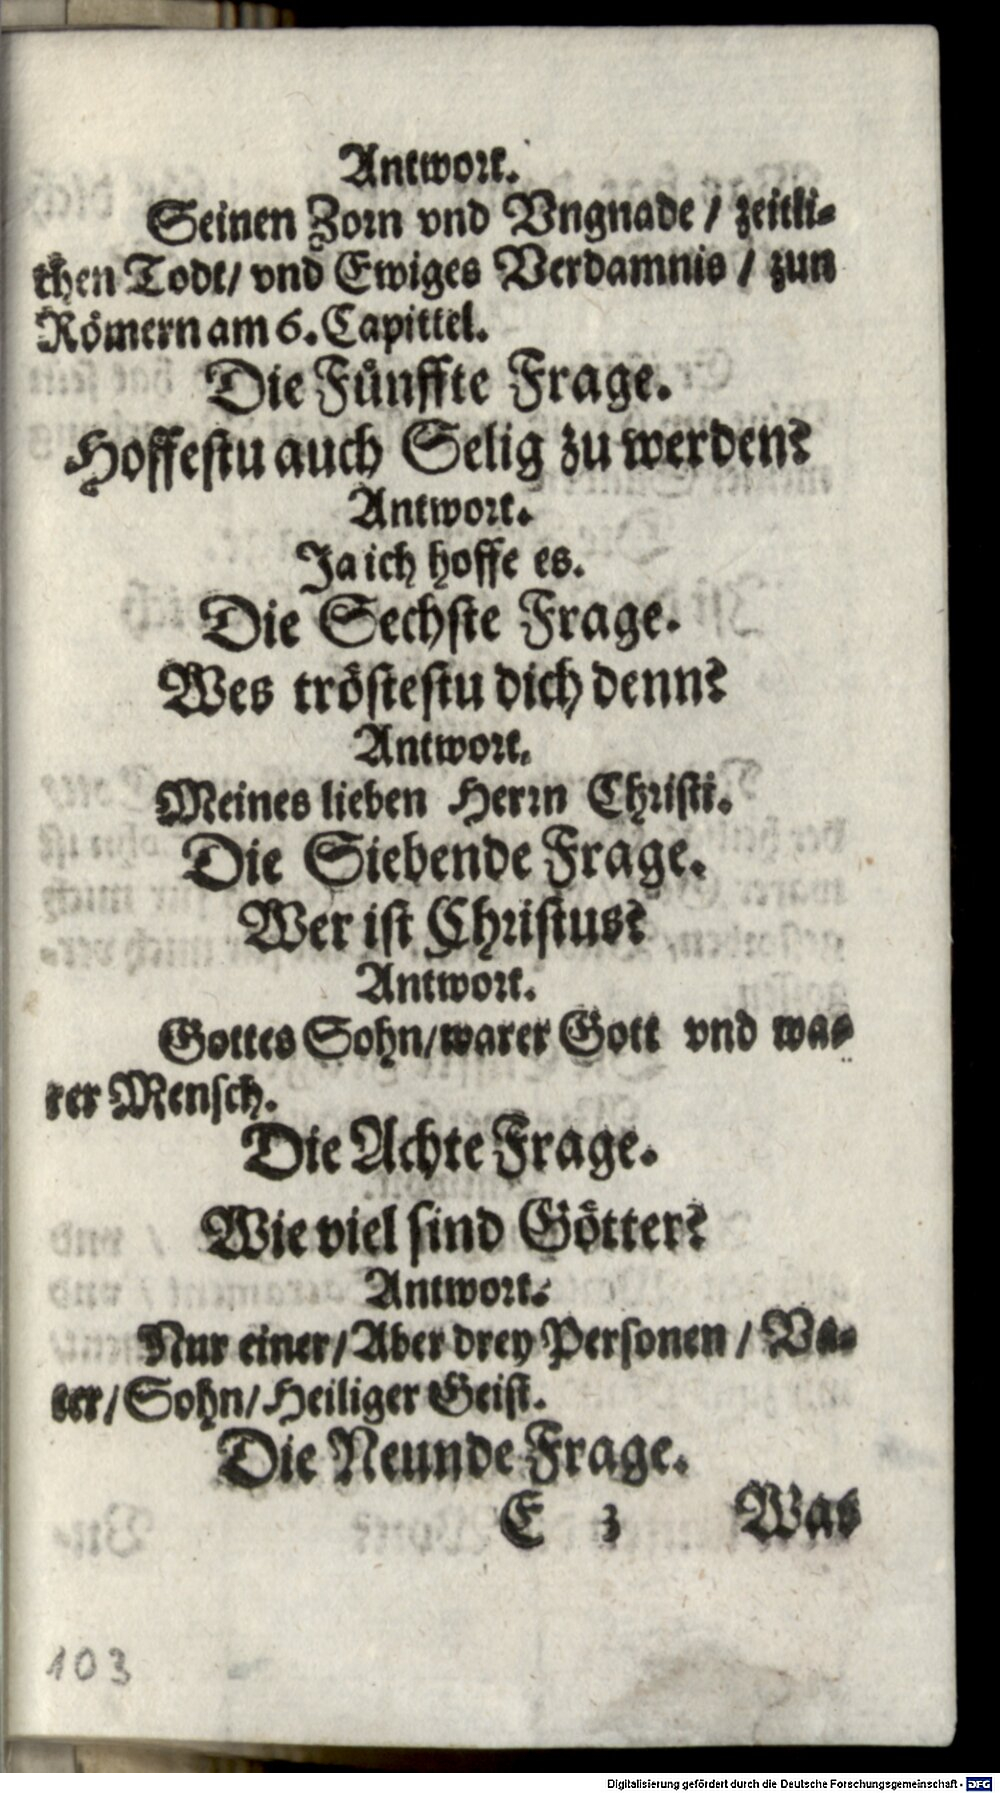 Antwort.
Seinen Zorn vnd Vngnade / zeitli-
chen Todt/ vnd Ewiges Verdamnis / zun
Römern am 6. Capittel.
Die Fünffte Frage.
Hoffestu auch Selig zu werden?
Antwort.
Ja ich hoffe es.
Die Sechste Frage.
Wes tröstestu dich denn?
Antwort.
Meines lieben Herrn Christi.
Die Siebende Frage.
Wer ist Christus?
Antwort.
Gottes Sohn/warer Gott vnd wa-
rer Mensch.
Die Achte Frage.
Wie viel sind Götter?
Antwort.
Nur einer/ Aber drey Personen / Va-
ter/ Sohn/ Heiliger Geist.
Die Neunde Frage.
E 3 Was
103
Digitalisierung gefördert durch die Deutsche Forschungsgemeinschaft - DFG